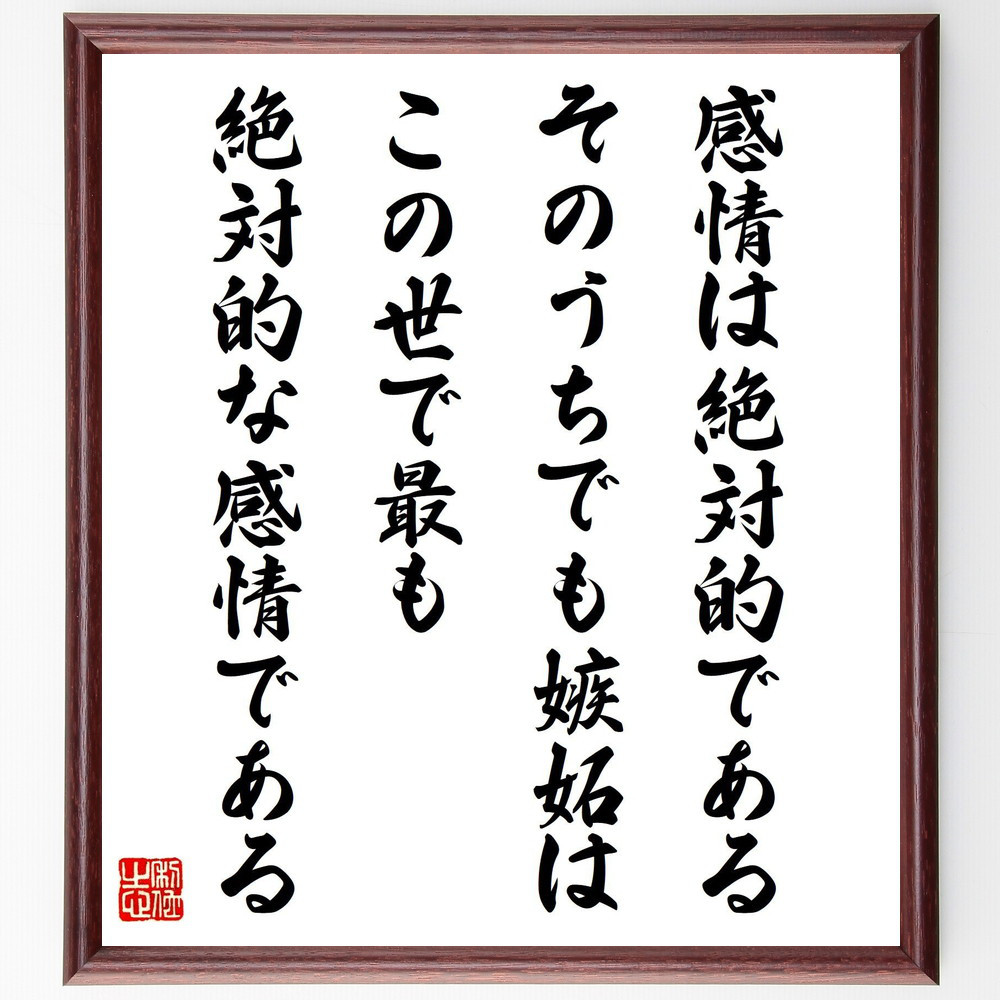 感情は絶対的である
そのうちでも嫉妬は
この世で最も
絶対的な感情である